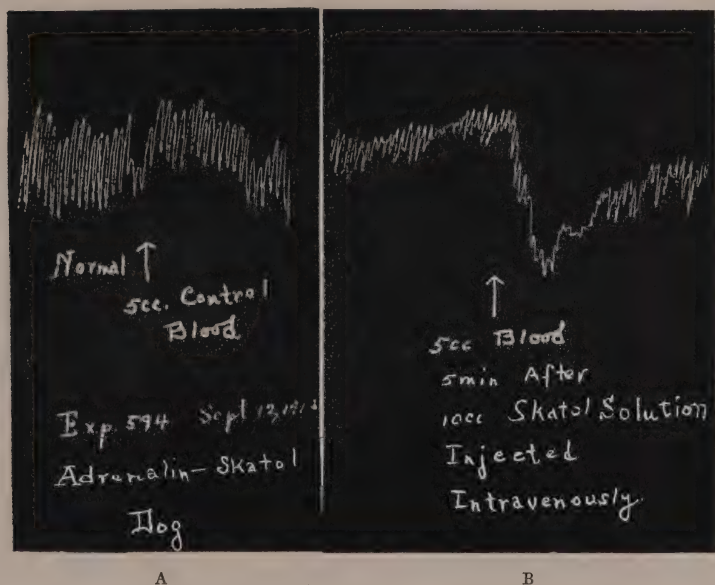 Normal
5cc. Control
Blood
Exp. 594 Sept
Adrenalin-Skatol
Dog
5cc Blood
5min After
10cc Skatol Solution
Injected
Intravenously.
A
B